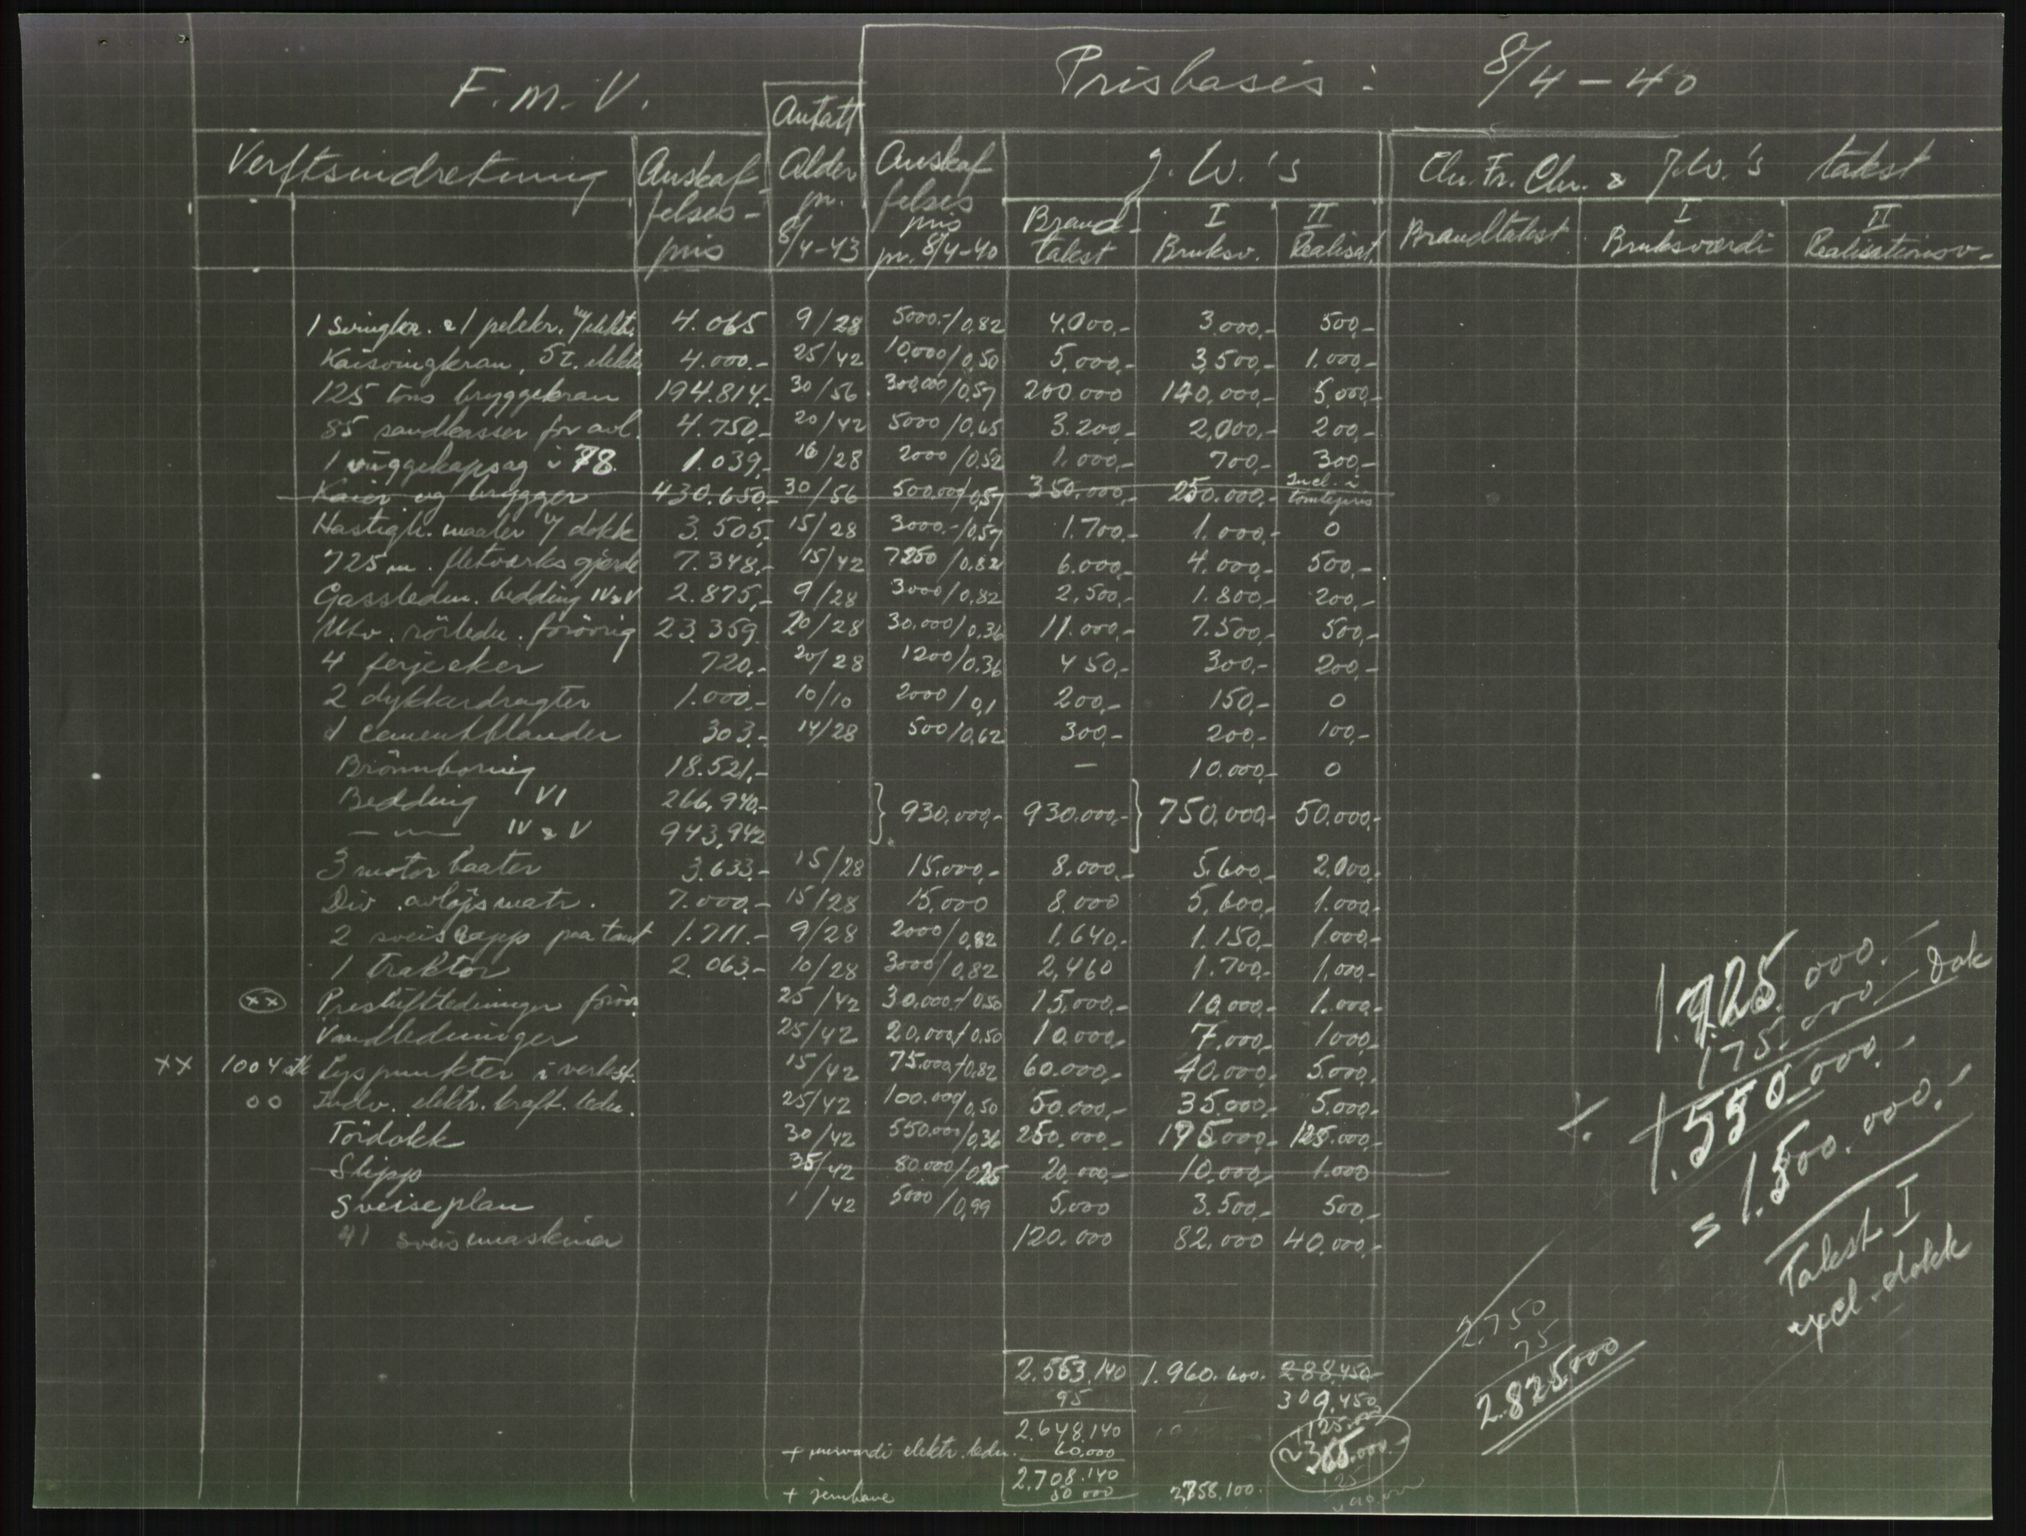 F.M.V. Prisbasis: 8/4-40
Antatt
Verftsindretning Anskaf- Alder Anskaf J.W.'s Chr. Fr. Chr. & J.W.'s takst
felses- pr. felses
pris 8/4-43 pris Brand- I II Brandtakst I II
pr. 8/4-40 takst Bruksv. Realisat. Bruksværdi Realisationsv-
1 svingkr. & 1 pelekr. m/elektr. 4.065 9/28 5000.-/0,82 4.000,- 3.000,- 500,-
Kaisvingkran, 5t. elektr. 4.000.- 25/42 10.000/0,50 5.000,- 3.500,- 1.000,-
125 tons bryggekran 194.814,- 30/56 300.000/0,57 200.000 140.000,- 5.000,-
85 sandkasser for avl. 4.750,- 20/42 5000/0,65 3.200,- 2.000,- 200,-
1 vuggekapsag i 78. 1.039,- 16/28 2000/0,52 1.000,- 700,- 300,-
Kaier og brygger 430.650,- 30/56 500.000/0,57 350.000,- 250.000,- Incl. i tomtepris
Hastigh. maaler i/ dokk 3.505,- 15/28 3000.-/0,57 1.700,- 1.000,- 0
725 m. fletverks gjerde 7.348,- 15/42 7250/0,82 6.000,- 4.000,- 500,-
Gassledn. bedding IV & V 2.875,- 9/28 3000/0,82 2,500,- 1.800,- 200,-
Utv. rörledn. forövrig 23.359 20/28 30.000/0,36 11.000,- 7.500,- 500,-
4 ferjeeker 720,- 20/28 1200/0,36 450,- 300,- 200,-
2 dykkerdragter 1.000.- 10/10 2000/0,1 200,- 150,- 0
1 cementblander 303.- 14/28 500/0,62 300,- 200,- 100,-
Brönnboring 18.521,- — 10.000,- 0
Bedding VI 266,940.-
930.000,- 930.000,- 750.000,- 50.000,-
—"— IV & V 943,942
3 motorbaater 3.633.- 15/28 15.000,- 8.000,- 5.600,- 2.000,-
Div. avlöpsmatr. 7.000.- 15/28 15.000 8.000 5,600,- 1.000,-
2 sveiseapp paa tomt 1.711.- 9/28 2000/0,82 1.640,- 1.150,- 1.000,-
1 traktor 2.063.- 10/28 3000/0,82 2,460 1.700,- 1.000,-
xx Presluftledninger forövr. 25/42 30.000/0,50 15.000,- 10.000,- 1.000,-
Vandledninger 25/42 20.000/0,50 10.000,- 7.000,- 1000,-
xx 1004 stk Lyspunkter i verkst. 15/42 75.000/0,82 60.000,- 40.000,- 5.000,-
oo Indv. elektr. kraft. ledn. 25/42 100.000/0,50 50.000,- 35.000,- 5.000,-
Tördokk 30/42 550.000/0,36 250,000,- 175.000,- 125.000,-
Slipp 35/42 80.000/0,25 20.000,- 10.000,- 1.000
Sveiseplan 1/42 5000/0,99 5.000 3.500,- 500,-
41 sveisemaskiner 120.000 82.000 40.000,-
1.725.000.-
175.000 - Dok
÷ 1.550.000.-
= 1.500.000.-
Takst I
excl. dokk
2.750
75
2.825.000
2.553.140 1.960.600. 288.450
95 309.450
2.648.140 125.000
+ merverdi elektr. ledn. 60.000 365.000.-
2.708.140 25
+ jernbane 50 000 2,758.100.